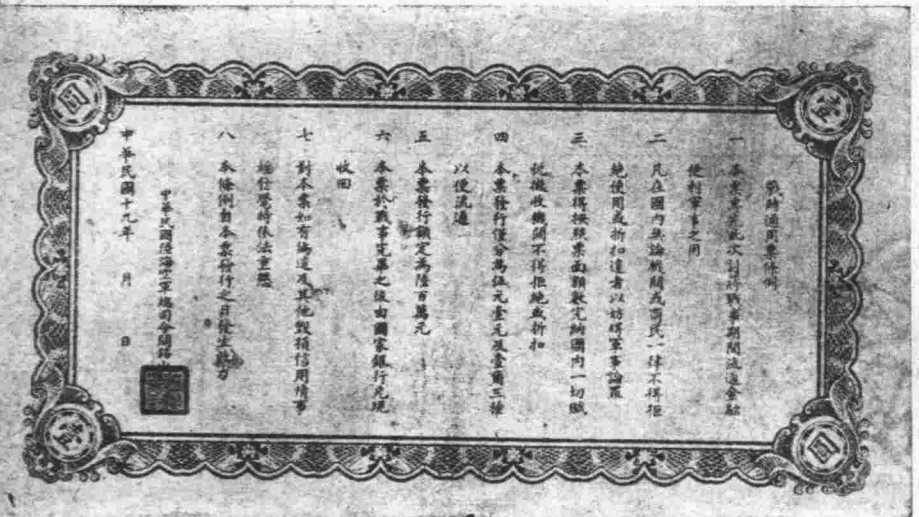 戰時通用票條例
一 本票專為此次討蔣戰事期間流通金融
便利軍事之用
二 凡在國內無論機關或商民一律不得拒
絕使用或折扣違者以妨碍軍事論罪
三 本票得按照票面額數完納國內一切賦
稅徵收機關不得拒絕或折扣
四 本票發行僅分為伍元壹元及壹角三種
以便流通
五 本票發行額定為陸百萬元
六 本票於戰事完畢之後由國家銀行兌現
收回
七 對本票如有偽造及其他毀損信用情事
按戒嚴時依法重懲
八 本條例自本票發行之日發生效力
中華民國陸海空軍總司令閻錫山
中華民國十九年 月 日
壹
圓
圓
壹